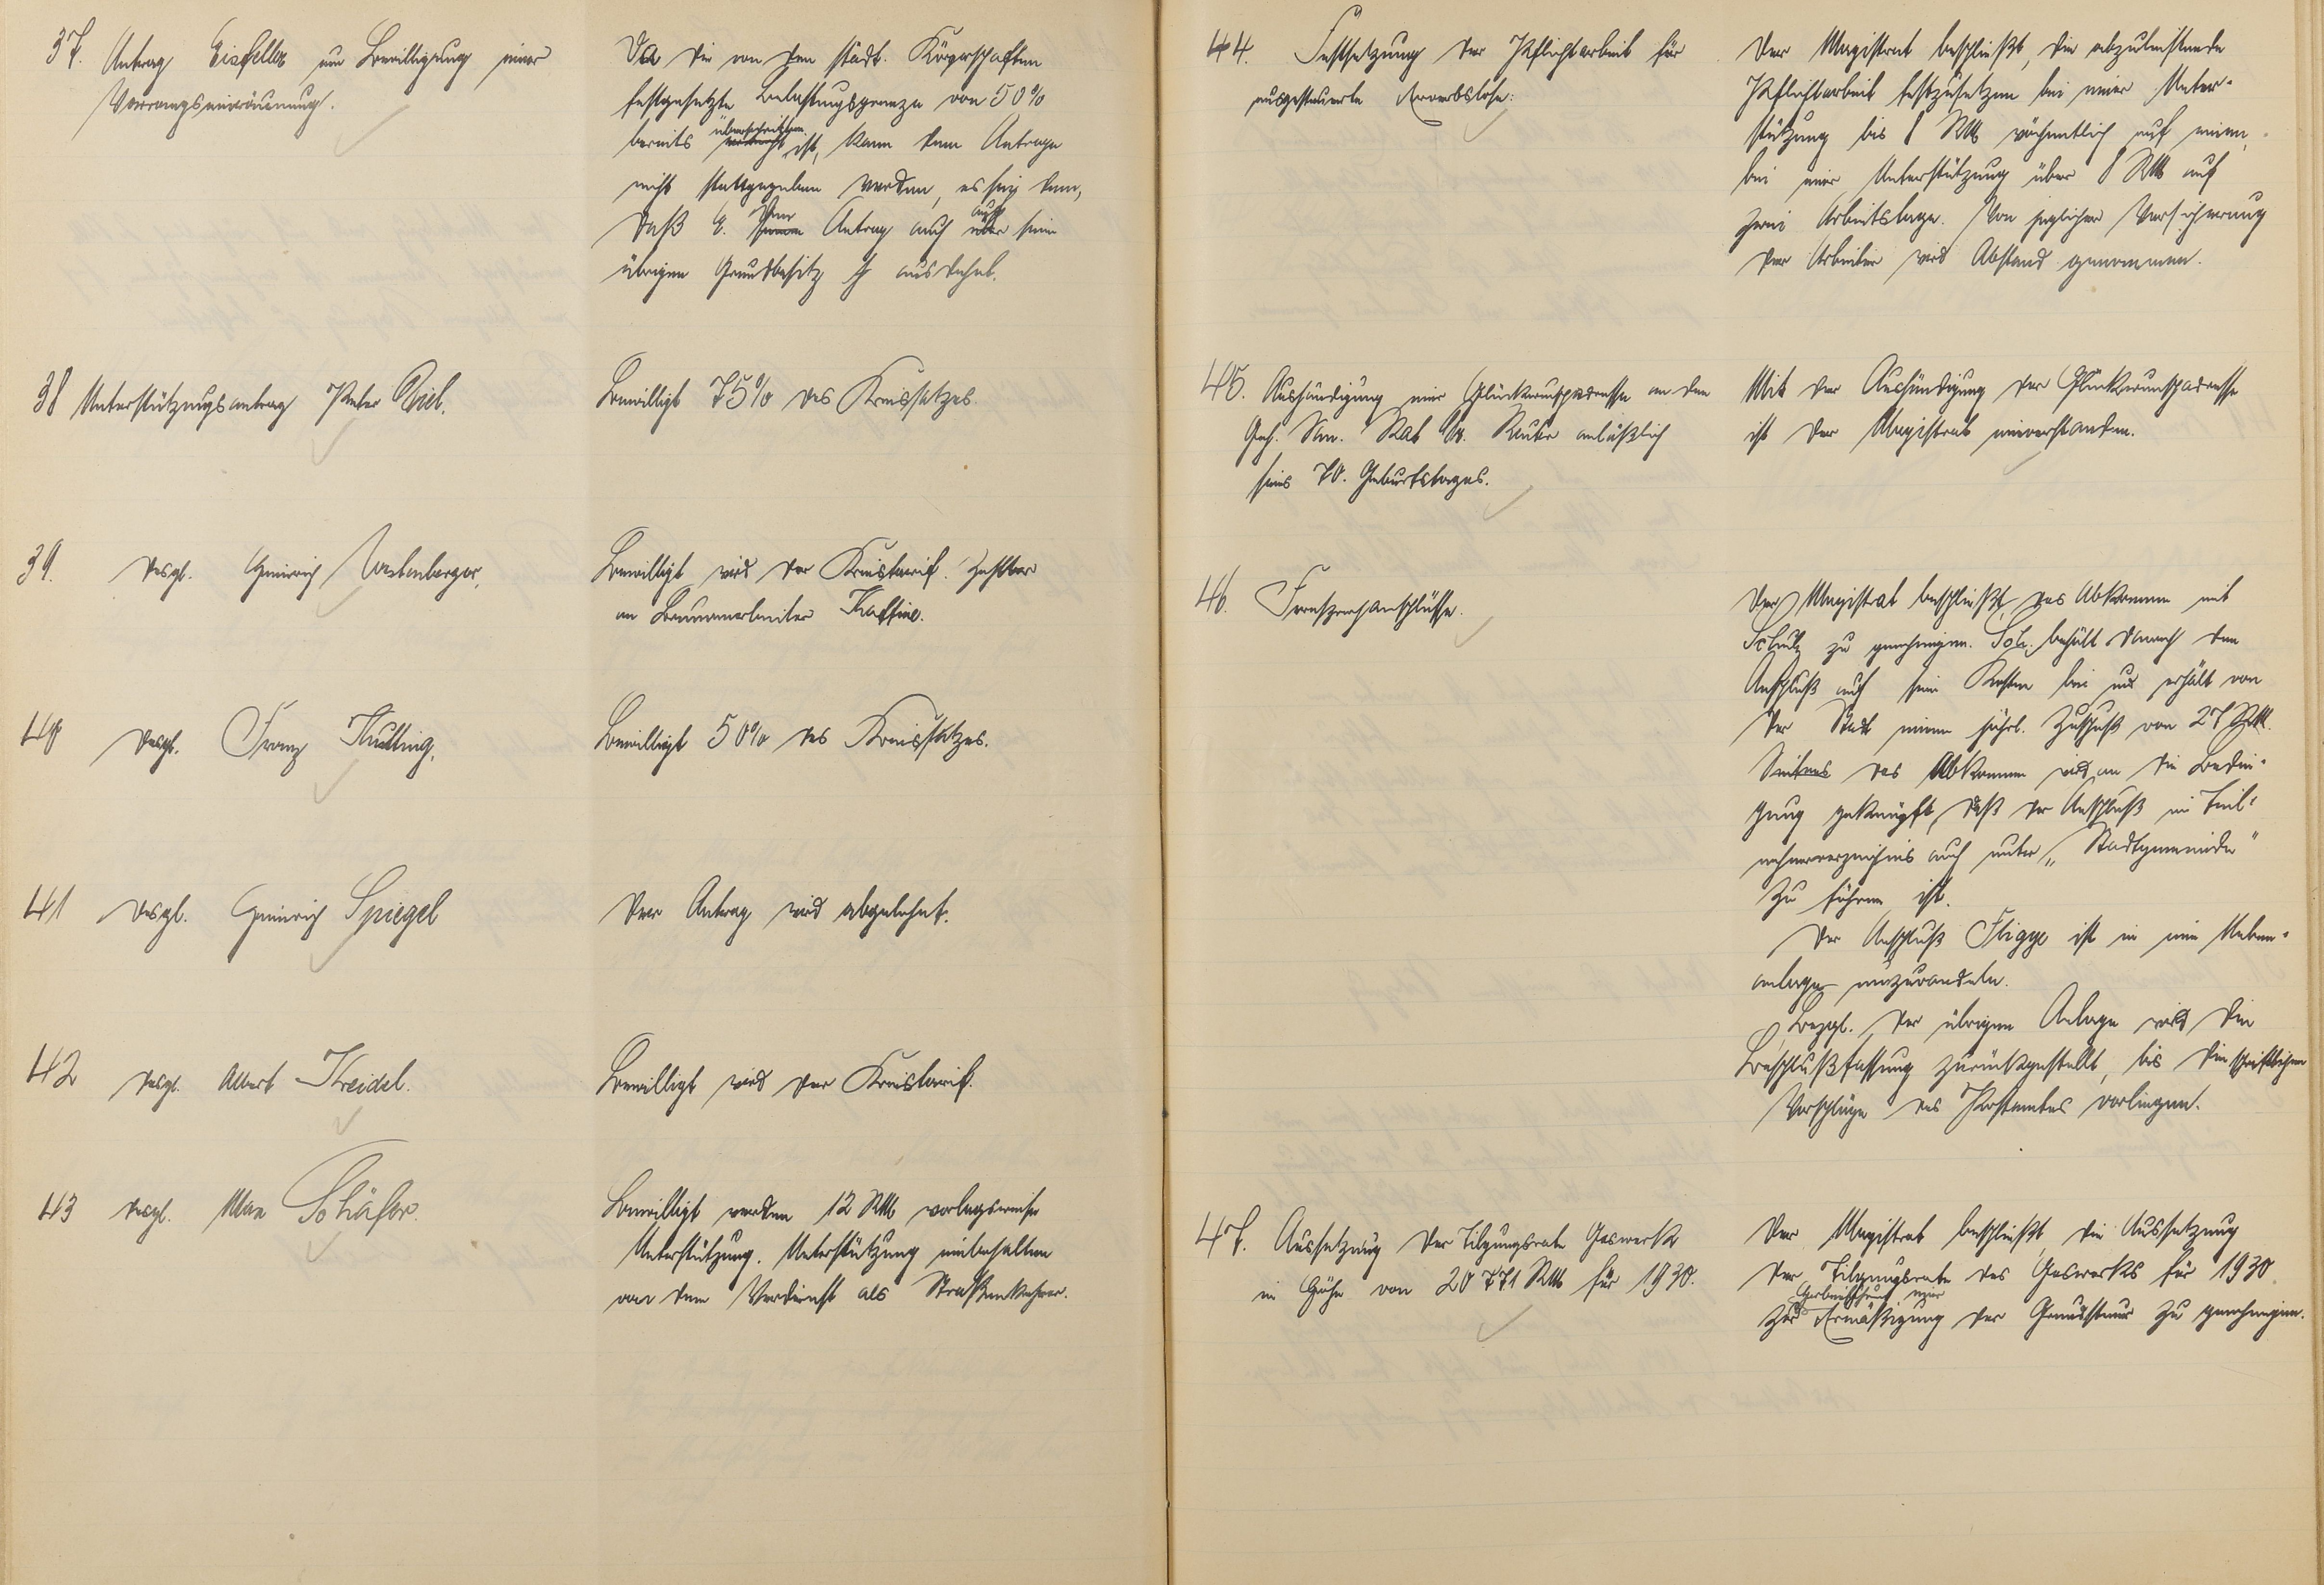 37. Antrag Eisfeller um Bewilligung einer
Vorrangseinräumung.
Da die von den städt. Körperschaften
festgesetzte Belastungsgrenze von 50%
bereits überschritten ist, kann dem Antrage
nicht stattgegeben werden, es sei denn,
daß E. den Antrag auch auf seine
übrigen Grundbesitz ausdehnt.
38 Unterstützungsantrag Peter Biel.
Bewilligt 75% des Kreissatzes.
39. desgl. Heinrich Westenberger.
Bewilligt wird der Kreistarif. Zahlbar
an Brunnenarbeiter
40 desgl. Franz Kutting.
Bewilligt 50% des Kreissatzes.
41 desgl. Heinrich Spiegel
Der Antrag wird abgelehnt.
42 desgl. Albert Kreidel.
Bewilligt wird der Kreistarif.
43 desgl. Max Schäfer.
Bewilligt werden 12 RM vorlagsweise
Unterstützung. Unterstützung einbehalten
von dem Verdienst als Straßenkehrer.
44. Festsetzung der Pflichtarbeit für
ausgesteuerte Erwerbslose.
Der Magistrat beschließt, die abzuleistende
Pflichtarbeit festzusetzen bei einer Unter-
stützung bis 8 RM wöchentlich auf einen,
bei einer Unterstützung über 8 RM auf
zwei Arbeitstage. Von jeglicher Versicherung
der Arbeiter wird Abstand genommen.
45. Aushändigung einer Glückwunschadresse an den
Geh. Rat Dr. anläßlich
seines 70. Geburtstages.
Mit der Aushändigung der Glückwunschadresse
ist der Magistrat einverstanden.
46. Fernsprechanschlüsse.
Der Magistrat beschließt, das Abkommen mit
Schulz zu genehmigen. Sch. behält danach den
Anschluß auf seine Kosten bei und erhält von
der Stadt einen jährl. Zuschuß von 27 RM.
Seitens des Abkommen wird an die Bedin-
gung geknüpft, daß der Anschluß im Teil-
nehmerverzeichnis auch unter „Stadtgemeinde"
zu führen ist.
Der Anschluß Fligge ist in eine Neben-
anlage umzuwandeln.
Bezgl. der übrigen Anlage wird die
Beschlußfassung zurückgestellt, bis die schriftlichen
Vorschläge des Postamtes vorliegen.
47. Aussetzung der Tilgungsrate Gaswerk
in Höhe von 20 771 RM für 1930.
Der Magistrat beschließt, die Aussetzung
der Tilgungsrate des Gaswerks für 1930
Herbeiführung einer
Ermäßigung der Grundsteuer zu genehmigen.